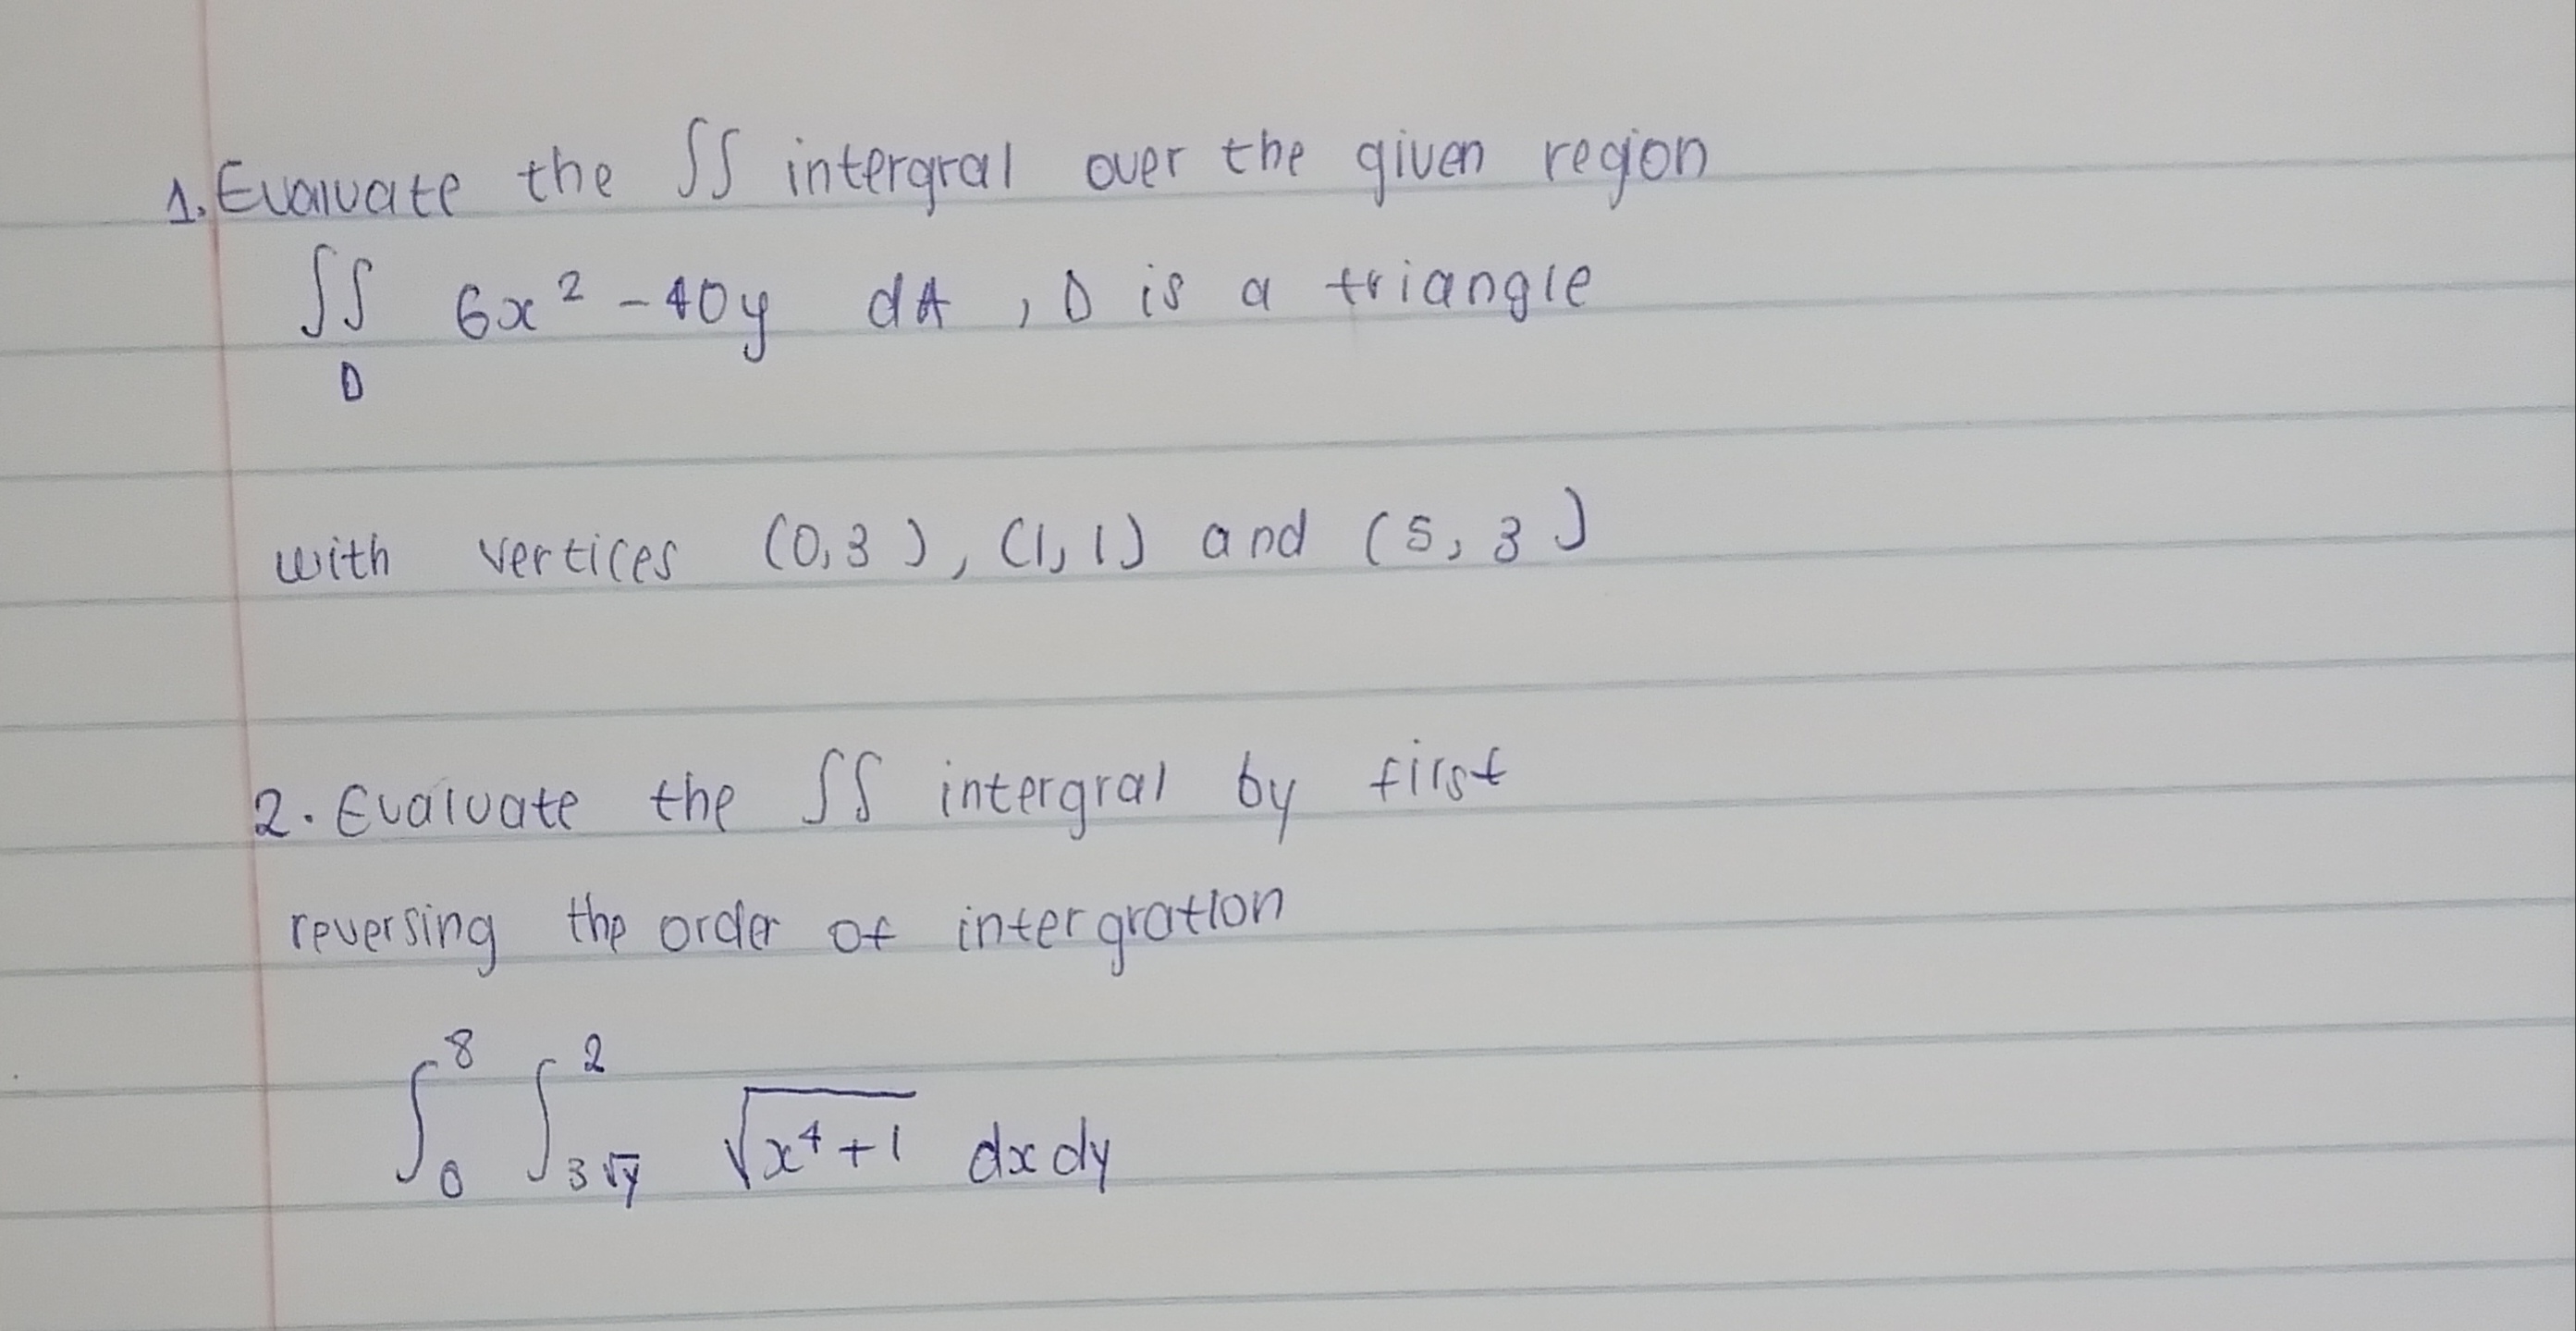 1. Evaluate the ∫∫ intergral over the given region
∫∫ 6x² - 40y dA , D is a triangle
D
with vertices (0,3), (1,1) and (5,3)
2. Evaluate the ∫∫ intergral by first
reversing the order of intergration
∫₀⁸ ∫₃√y² √(x⁴+1) dx dy